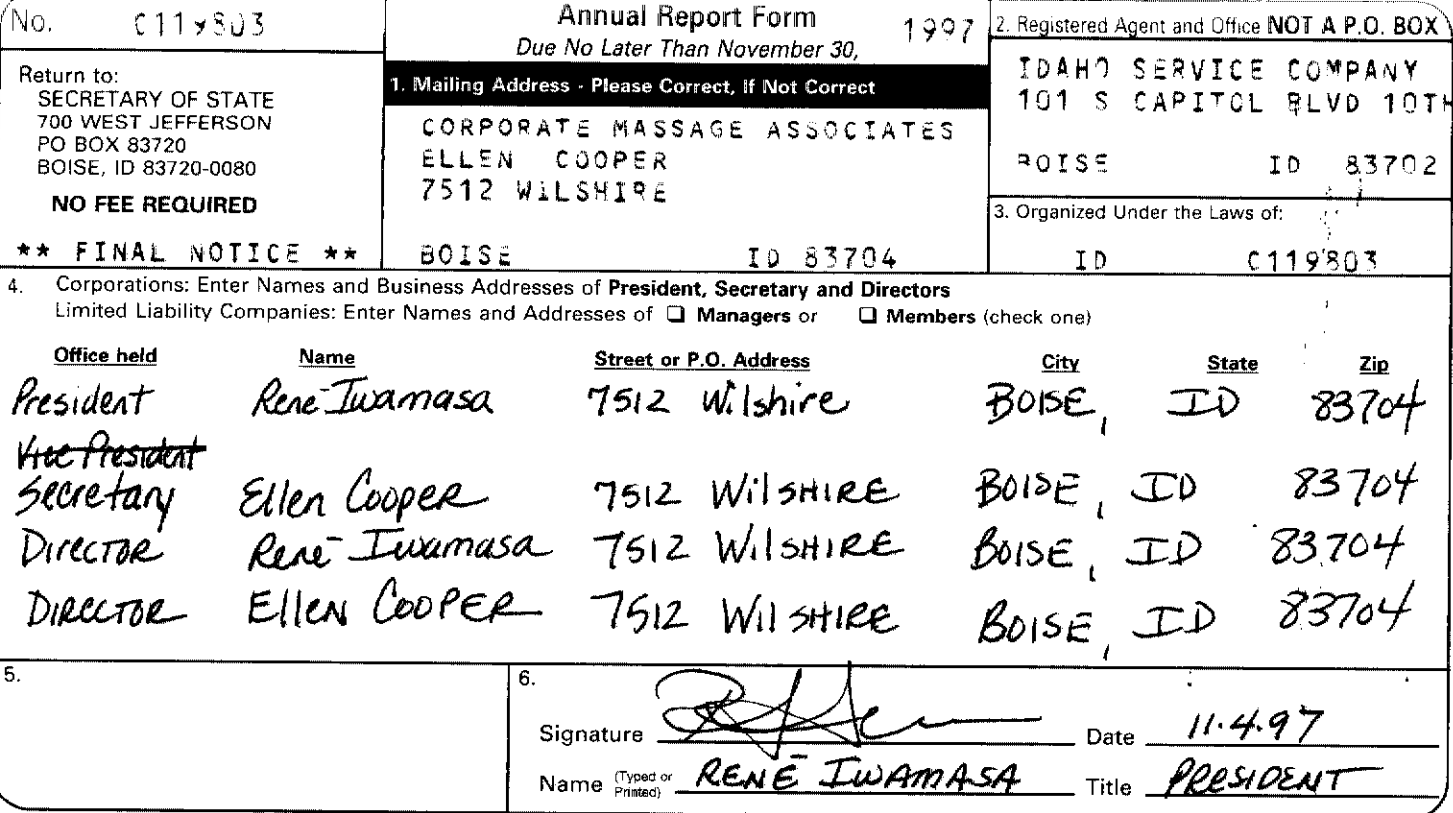 No. C119803
Annual Report Form 1997
Due No Later Than November 30,
Return to:
SECRETARY OF STATE
700 WEST JEFFERSON
PO BOX 83720
BOISE, ID 83720-0080
NO FEE REQUIRED
** FINAL NOTICE **
1. Mailing Address - Please Correct, If Not Correct
CORPORATE MASSAGE ASSOCIATES
ELLEN COOPER
7512 WILSHIRE
BOISE ID 83704
2. Registered Agent and Office NOT A P.O. BOX
IDAHO SERVICE COMPANY
101 S CAPITOL BLVD 10TH
BOISE ID 83702
3. Organized Under the Laws of:
ID C119803
4. Corporations: Enter Names and Business Addresses of President, Secretary and Directors
Limited Liability Companies: Enter Names and Addresses of ❑ Managers or ❑ Members (check one)
Office held Name Street or P.O. Address City State Zip
President René Iwamasa 7512 Wilshire BOISE, ID 83704
Vice President
Secretary Ellen Cooper 7512 WilSHIRE BOISE, ID 83704
Director René Iwamasa 7512 WilSHIRE BOISE, ID 83704
Director Ellen COOPER 7512 WilSHIRE BOISE, ID 83704
5.
6.
Signature Date 11.4.97
Name (Typed or Printed) RENÉ IWAMASA Title PRESIDENT